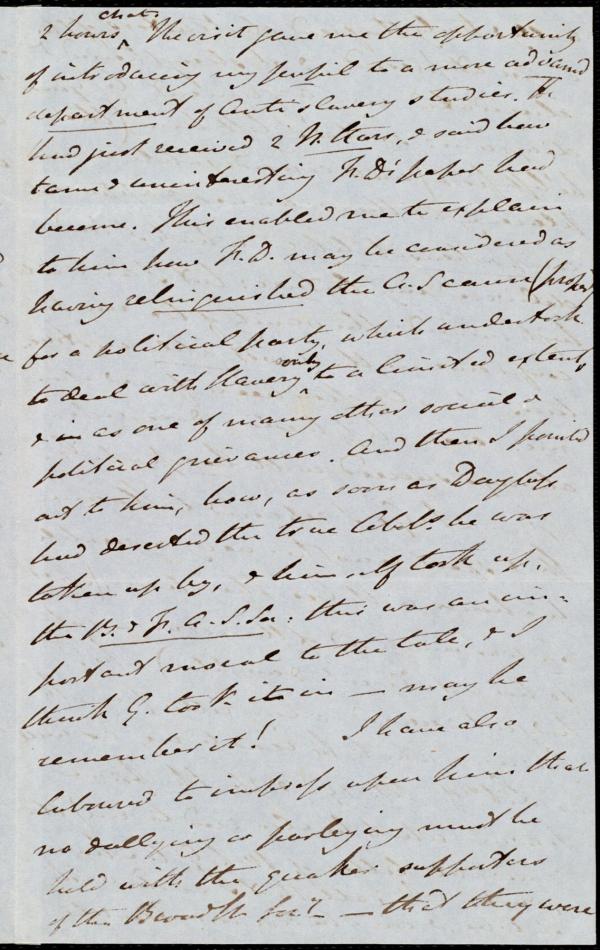 2 hours chat. The visit gave me the opportunity
of introducing my pupil to a more advanced
department of Anti slavery studies. He
had just received 2 N. Stars, & said how
tame & uninteresting F. D's paper had
become. This enabled me to explain
to him how F. D. may be considered as
having relinquished the A. S cause (proper)
for a political party, which undertook
to deal with Slavery only to a limited extent,
& in as one of many other social &
political grievances. And then I pointed
out to him, how, as soon as Douglass
had deserted the true Abolts. he was
taken up by, & himself took up,
the B. & F. A. S. So: this was an im=
portant moral to the tale, & I
think G. took it in — may he
remember it! I have also
laboured to impress upon him that
no dallying or parleying must be
held with the quaker supporters
of the Broad St Socy. — that they were